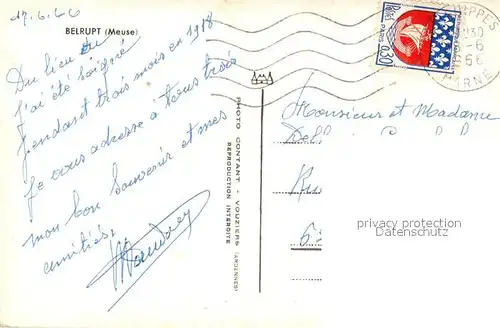 17.6.66
BELRUPT (Meuse)
Du lieu où
j'ai été soigné
pendant trois mois en 1918
Je vous adresse à tous trois
mon bon souvenir et mes
amitiés.
PHOTO CONTANT - VOUZIERS (ARDENNES)
REPRODUCTION INTERDITE
PARIS
0,30
MARNE
Monsieur et Madame
Ru
privacy protection
Datenschutz